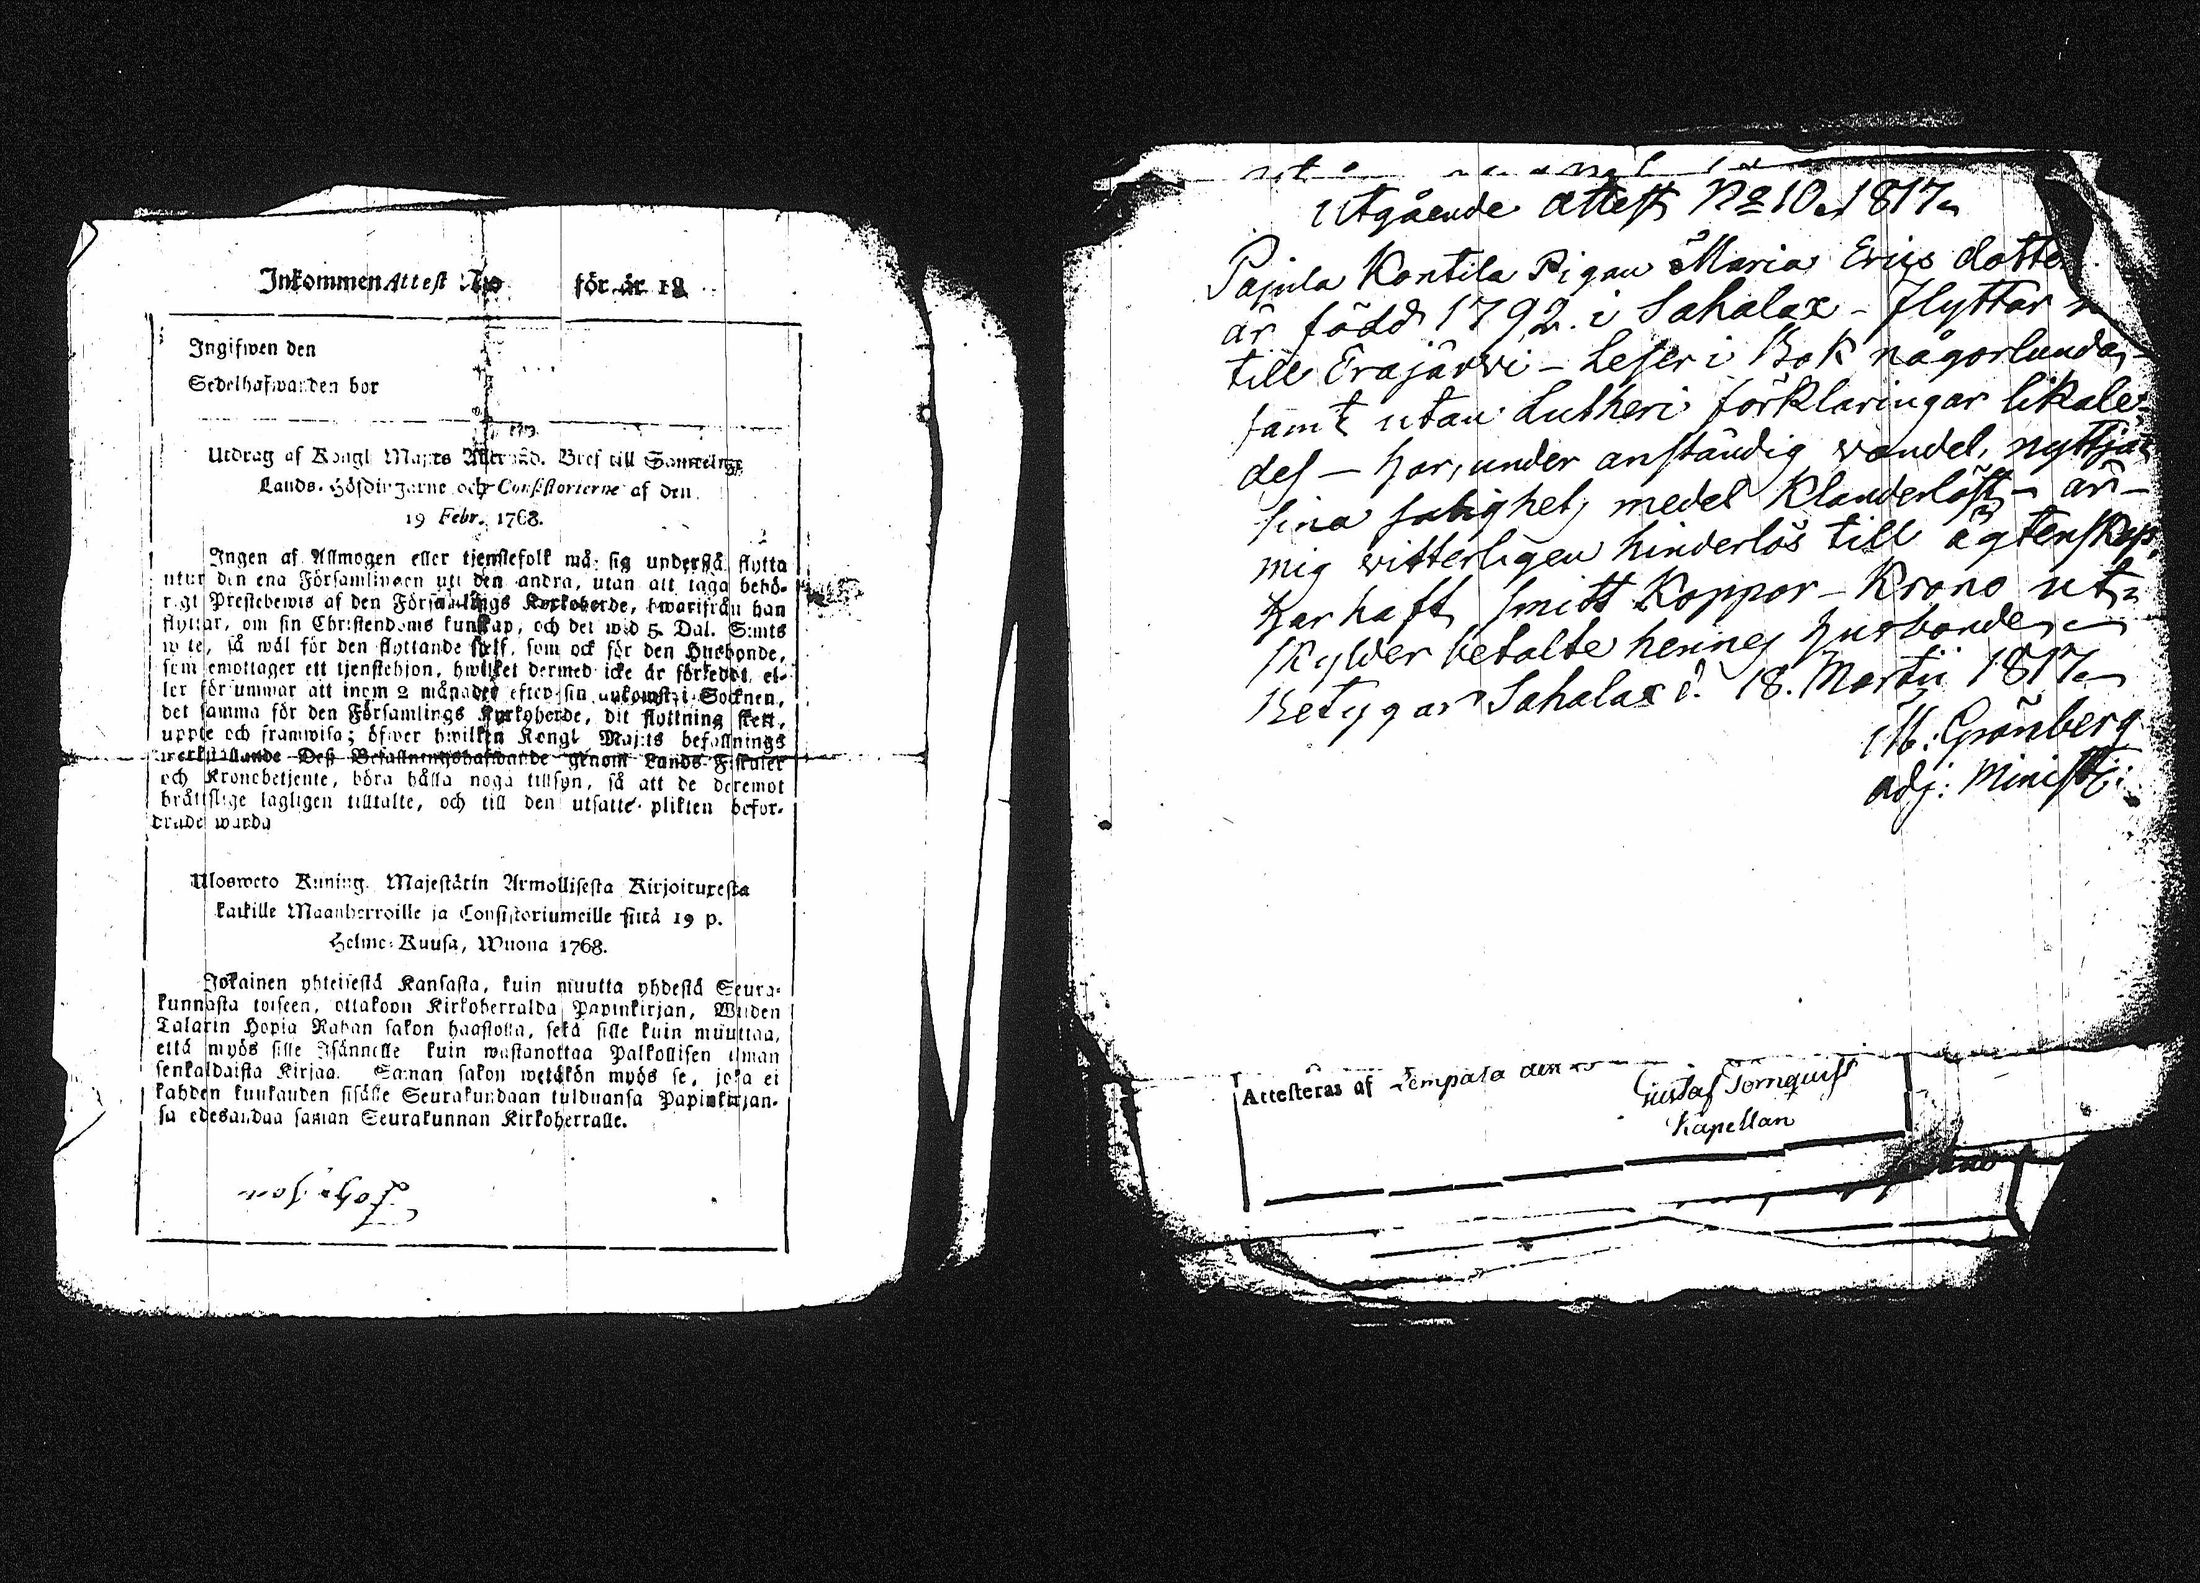 Inkommen Attest No för år 18
Ingifwen den
Sedelhafwanden bor
Utdrag af Kongl Maj:ts Allernåd. Bref till Samtelige
Lands-Höfdingarne och Consistorierne af den
19 Febr. 1768.
Ingen af Allmogen eller tjenstefolk må sig understå flytta
utur den ena Församlingen uti den andra, utan att taga behö-
rigt Prestebewis af den Församlings Kyrkoherde, hwarifrån han
flyttar, om sin Christendoms kunskap, och det wid 5 Dal. S:mts
wite, så wäl för den flyttande sielf, som ock för den Husbonde,
som emottager ett tjenstehjon, hwilket dermed icke är försedt, el-
ler försummar att inom 2 månader efter sin ankomst i Socknen,
det samma för den Församlings Kyrkoherde, dit flyttning skett,
uppte och framwisa; öfwer hwilken Kongl Maj:ts befallnings
werkställande Deß Befallningshafwande genom Lands-Fiskaler
och Kronobetjente, böra hålla noga tillsyn, så att de deremot
brättslige lagligen tilltalte, och till den utsatte plikten befor-
drade warda
Ulosweto Kuning. Majestätin Armollisesta Kirjoituxesta
kaikille Maanherroille ja Consistoriumeille siitä 19 p.
Helme-Kuusa, Wuona 1768.
Jokainen yhteisestä Kansasta, kuin muutta yhdestä Seura-
kunnasta toiseen, ottakoon Kirkoherralda Papinkirjan, Wiiden
Talarin Hopia Rahan sakon haastolla, sekä sille kuin muuttaa,
että myös sille Isännelle kuin wastanottaa Palkollisen ilman
senkaldaista Kirjaa. Saman sakon wetäkön myös se, joka ei
kahden kuukauden sisälle Seurakundaan tulduansa Papinkirjan-
sa edesandaa saman Seurakunnan Kirkoherralle.
utgående attest No 10. 1817.
Pajula Kontila Pigan Maria Erics dotter
är född 1792. i Sahalax - flyttar
till Erajärwi - Leser i Bok någorlunda,
samt utan Lutheri förklaringar likale-
des - har, under anständig wandel, nyttjat
sina salighets medel Klanderlöst - är
mig witterligen hinderlös till ägtenskap,
har haft smitt Koppor - Krono ut-
skylder betalte hennes husbonde,
Betygar Sahalax d. 18. Martii 1817.
M: Grönberg
adj: Ministe:
Attesteras af Lempala den
Gustaf Törnquist
Kapellan